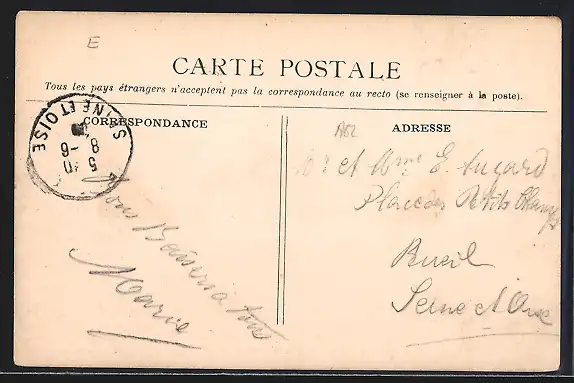 E
CARTE POSTALE
Tous les pays étrangers n'acceptent pas la correspondance au recto (se renseigner à la poste).
SEINE ET OISE
8
5 -6
CORRESPONDANCE
Bons Baisers a tous
Marie
A62
ADRESSE
Mr et Mme E.
Place des Petits Champs
Rueil
Seine et Oise